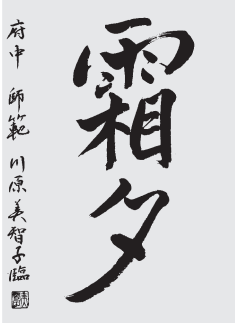 霜夕
府中 師範 川原美智子臨